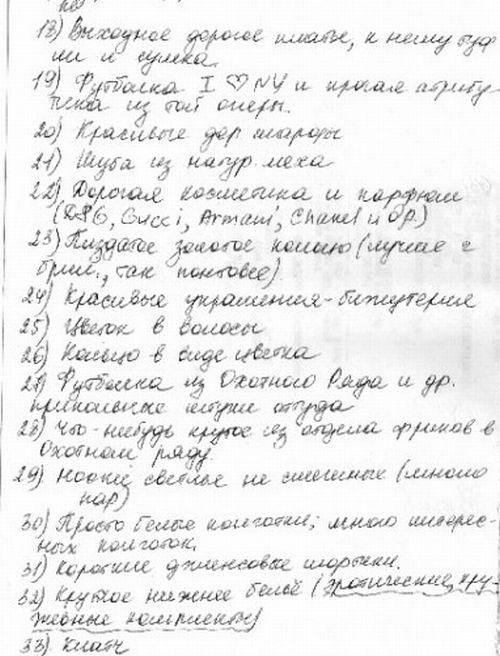 18) Выходное дорогое платье, к нему туф
ли и сумка.
19) Футболка I ♡ NY и прочая атрибу-
тика из той оперы.
20) Красивые дер
21) Шуба из натур. меха
22) Дорогая косметика и парфюм
(D&G, Gucci, Armani, Chanel и др.)
23) Пиздатое золотое кольцо (лучше с
брил., так понтовее)
24) Красивые украшения-бижутерия
25) Цветок в волосы
26) Кольцо в виде цветка
27) Футболка из Охотного Ряда и др.
прикольные штуки оттуда
28) Что-нибудь крутое из отдела фриков в
Охотном ряду.
29) Носки светлые не смешных (много
пар)
30) Просто белые колготки; много интерес-
ных колготок.
31) Короткие джинсовые шортики.
32) Крутое нижнее бельё (эротические, кру-
жевные комплекты)
33) Клатч